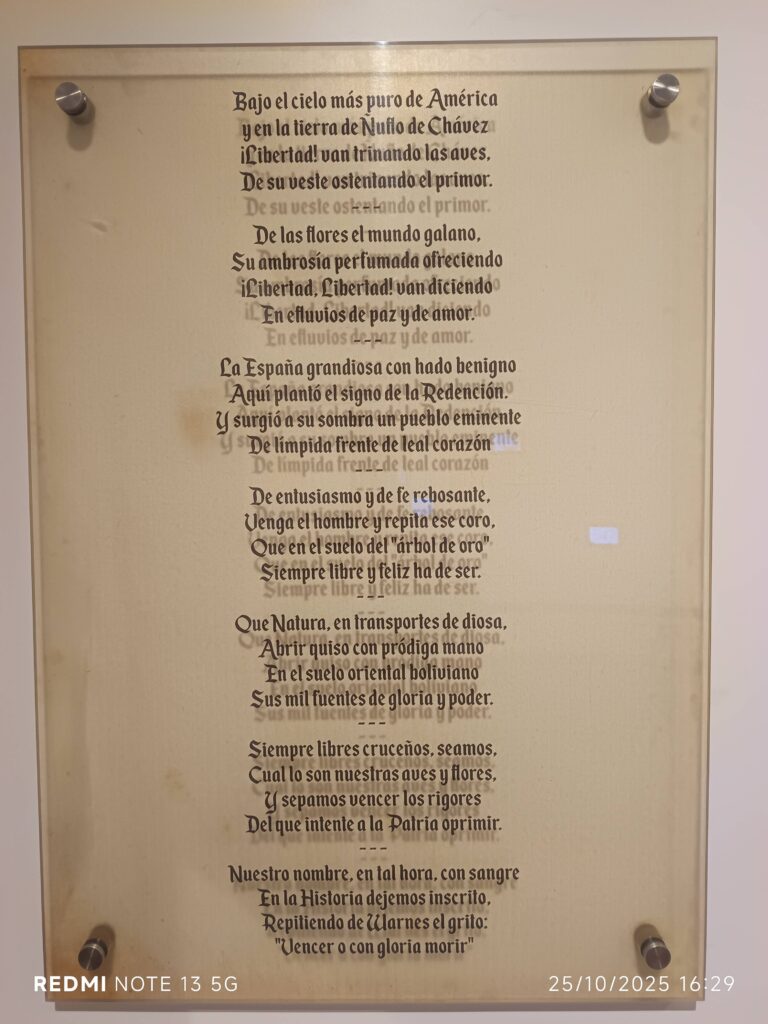 Bajo el cielo más puro de América
y en la tierra de Ñuflo de Chávez
¡Libertad! van trinando las aves,
De su veste ostentando el primor.
---
De las flores el mundo galano,
Su ambrosía perfumada ofreciendo
¡Libertad, Libertad! van diciendo
En efluvios de paz y de amor.
---
La España grandiosa con hado benigno
Aquí plantó el signo de la Redención.
Y surgió a su sombra un pueblo eminente
De límpida frente de leal corazón
---
De entusiasmo y de fe rebosante,
Venga el hombre y repita ese coro,
Que en el suelo del "árbol de oro"
Siempre libre y feliz ha de ser.
---
Que Natura, en transportes de diosa,
Abrir quiso con pródiga mano
En el suelo oriental boliviano
Sus mil fuentes de gloria y poder.
---
Siempre libres cruceños, seamos,
Cual lo son nuestras aves y flores,
Y sepamos vencer los rigores
Del que intente a la Patria oprimir.
---
Nuestro nombre, en tal hora, con sangre
En la Historia dejemos inscrito,
Repitiendo de Warnes el grito:
"Vencer o con gloria morir"
REDMI NOTE 13 5G
25/10/2025 16:29